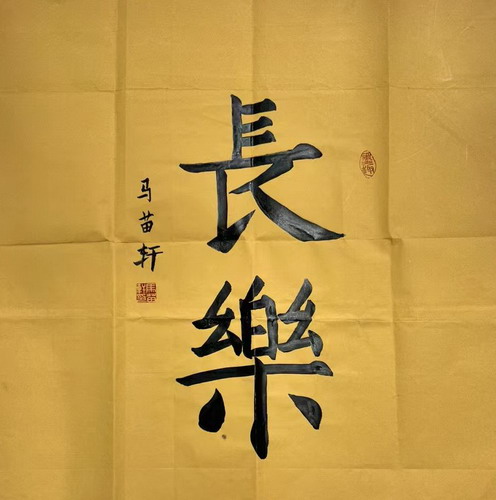 長樂
马苗轩